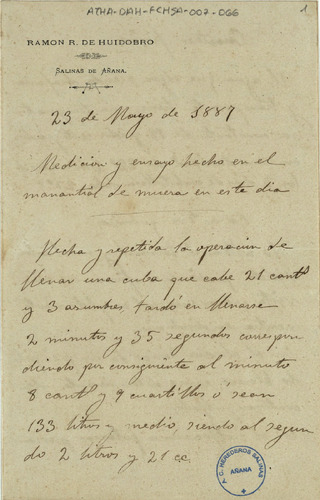 ATHA-DAH-FCHSA-002-066
1
RAMON R. DE HUIDOBRO
SALINAS DE AÑANA.
23 de Mayo de 1887
Medicion y ensayo hecho en el
manantial de muera en este dia
Hecha y repetida la operacion de
llenar una cuba que cabe 21 cantˢ
y 3 azumbres tardó en llenarse
2 minutos y 35 segundos correspon
diendo por consiguiente al minuto
8 cantˢ y 9 cuartillos ó sean
133 litros y medio, siendo al segun
do 2 litros y 21 cc.
C. HEREDEROS SALINAS
AÑANA